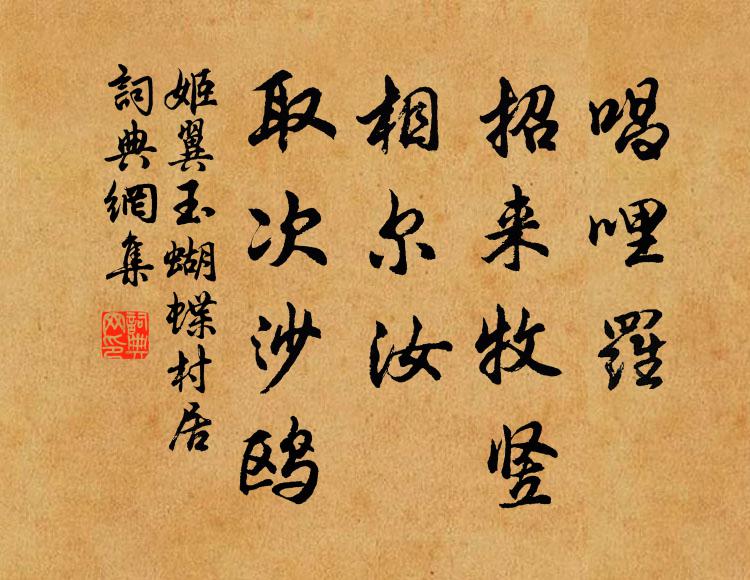 唱哩羅
招来牧竖
相尔汝
取次沙鸥
姬翼玉蝴蝶村居
詞典網集
詞典网印